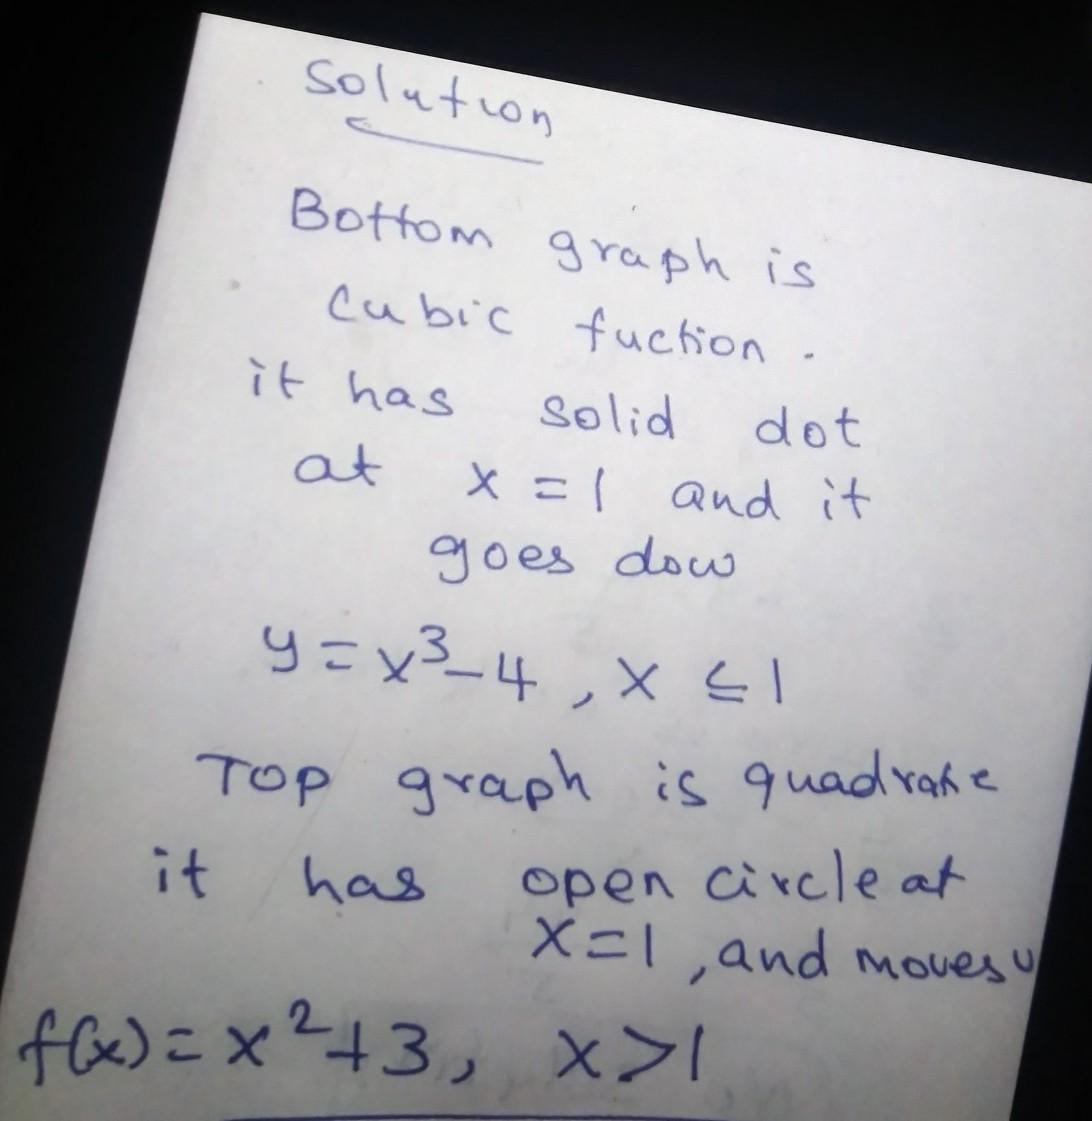 Solution
Bottom graph is
Cubic fuction.
it has solid dot
at x = 1 and it
goes dow
y = x³-4, x ≤ 1
Top graph is quadratic
it has open circle at
x=1, and moves u
f(x) = x²+3, x>1